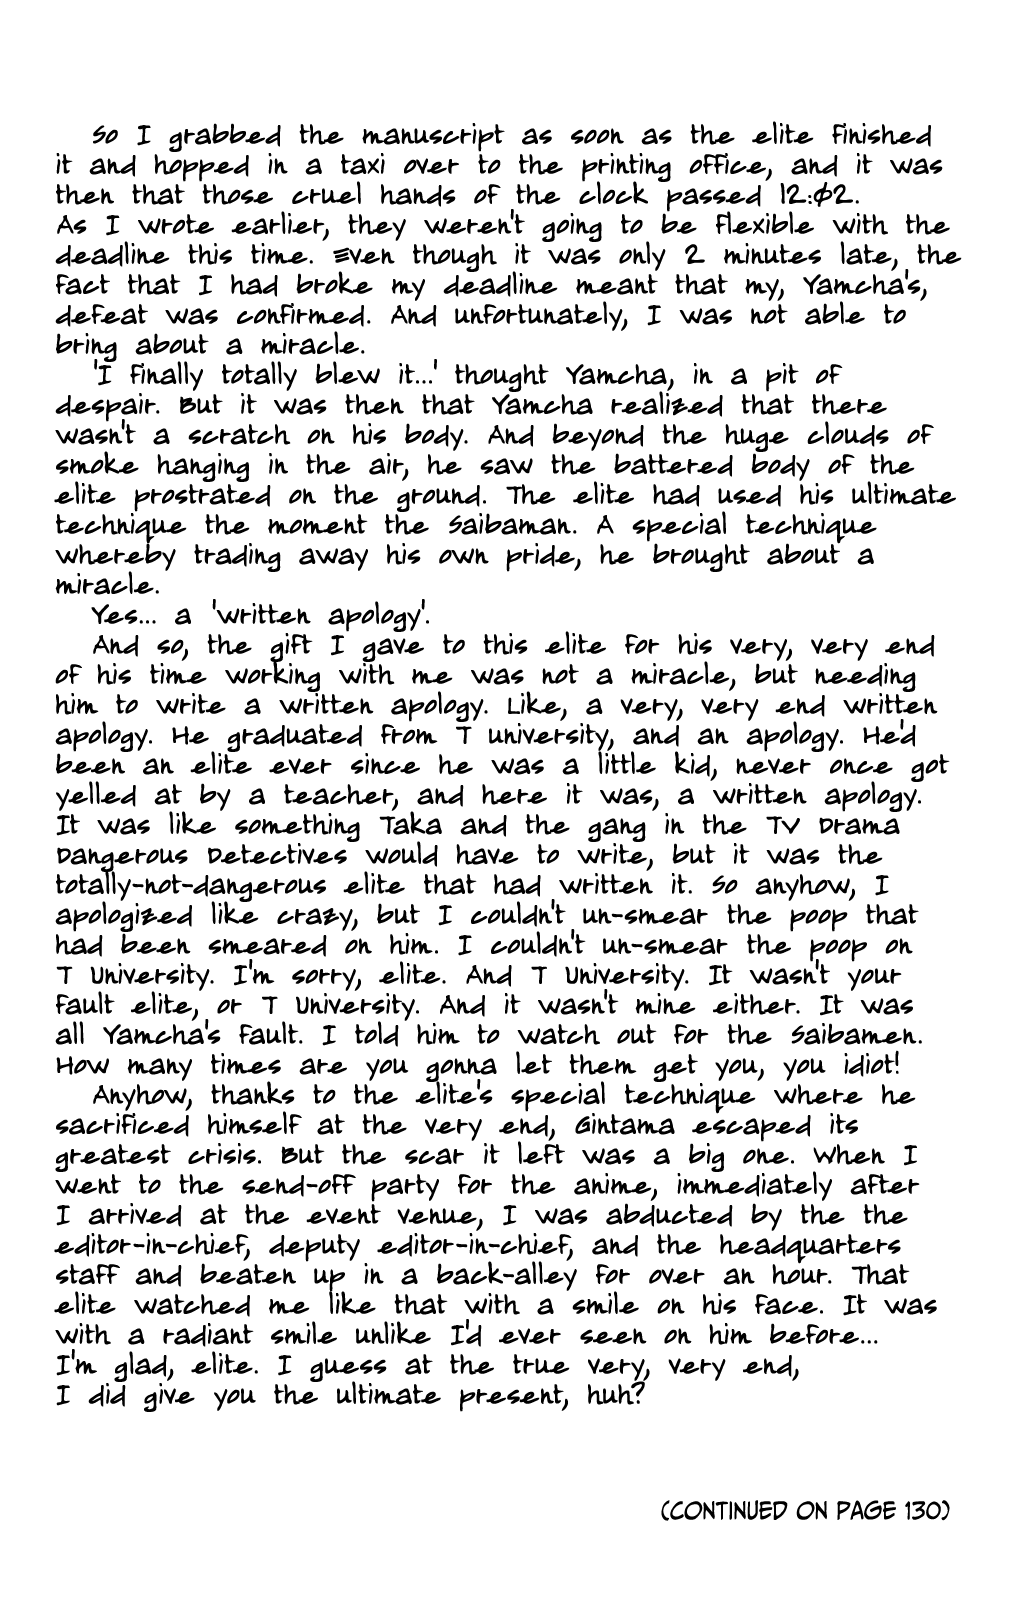 So I grabbed the manuscript as soon as the elite finished
it and hopped in a taxi over to the printing office, and it was
then that those cruel hands of the clock passed 12:02.
As I wrote earlier, they weren't going to be flexible with the
deadline this time. Even though it was only 2 minutes late, the
fact that I had broke my deadline meant that my, Yamcha's,
defeat was confirmed. And unfortunately, I was not able to
bring about a miracle.
'I finally totally blew it...' thought Yamcha, in a pit of
despair. But it was then that Yamcha realized that there
wasn't a scratch on his body. And beyond the huge clouds of
smoke hanging in the air, he saw the battered body of the
elite prostrated on the ground. The elite had used his ultimate
technique the moment the Saibaman. A special technique
whereby trading away his own pride, he brought about a
miracle.
Yes... a 'written apology'.
And so, the gift I gave to this elite for his very, very end
of his time working with me was not a miracle, but needing
him to write a written apology. Like, a very, very end written
apology. He graduated from T university, and an apology. He'd
been an elite ever since he was a little kid, never once got
yelled at by a teacher, and here it was, a written apology.
It was like something Taka and the gang in the TV Drama
Dangerous Detectives would have to write, but it was the
totally-not-dangerous elite that had written it. So anyhow, I
apologized like crazy, but I couldn't un-smear the poop that
had been smeared on him. I couldn't un-smear the poop on
T University. I'm sorry, elite. And T University. It wasn't your
fault elite, or T University. And it wasn't mine either. It was
all Yamcha's fault. I told him to watch out for the Saibamen.
How many times are you gonna let them get you, you idiot!
Anyhow, thanks to the elite's special technique where he
sacrificed himself at the very end, Gintama escaped its
greatest crisis. But the scar it left was a big one. When I
went to the send-off party for the anime, immediately after
I arrived at the event venue, I was abducted by the the
editor-in-chief, deputy editor-in-chief, and the headquarters
staff and beaten up in a back-alley for over an hour. That
elite watched me like that with a smile on his face. It was
with a radiant smile unlike I'd ever seen on him before...
I'm glad, elite. I guess at the true very, very end,
I did give you the ultimate present, huh?
(CONTINUED ON PAGE 130)